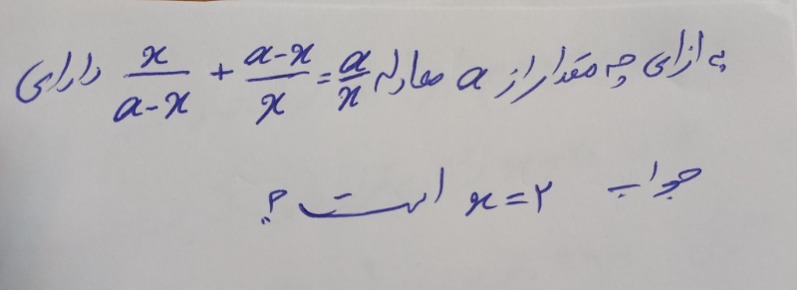 به ازای چه مقدار از a معادله x/(a-x) + (a-x)/x = a/x دارای
جواب x=۲ است؟